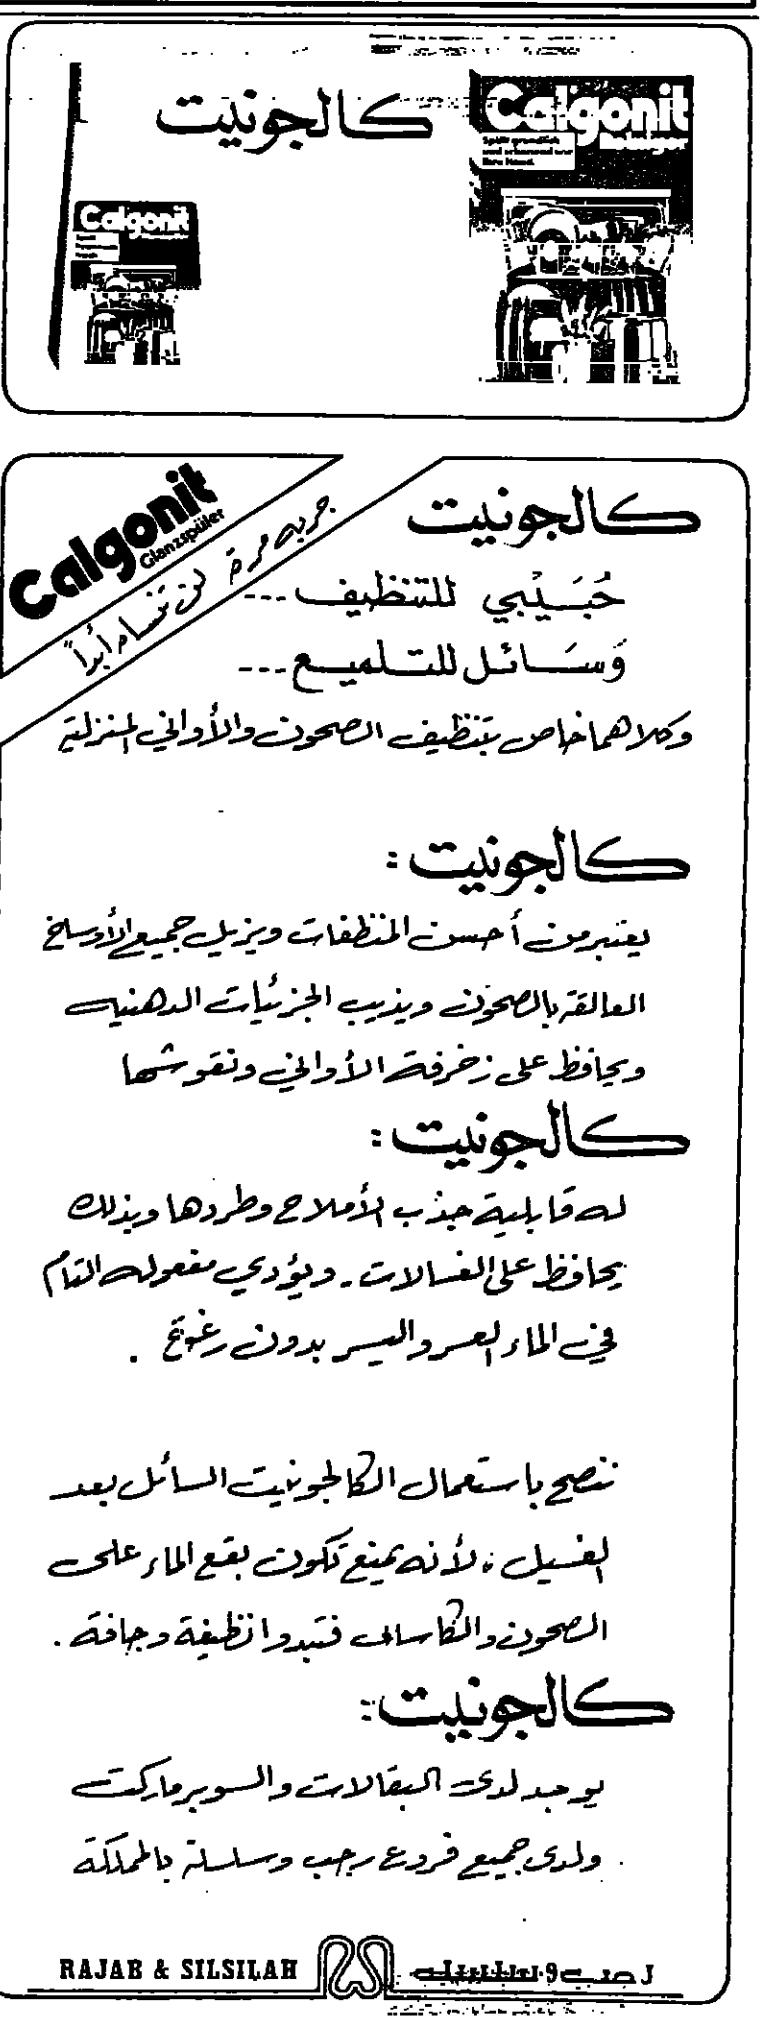 كالجونيت
Calgonit
Calgonit
Calgonit
Glanzspüler
جربه مرة لن تنساه أبداً
كالجونيت
حُبَيْبي للتنظيف ---
وَسَائل للتلميع ---
وكلاهما خاص بتنظيف الصحون والأواني المنزلية
كالجونيت :
يعتبر من أحسن المنظفات ويزيل جميع الأوساخ
العالقة بالصحون ويذيب الجزئيات الدهنيه
ويحافظ على زخرفة الأواني ونقوشها
كالجونيت :
له قابلية جذب الأملاح وطردها وبذلك
يحافظ على الغسالات - ويؤدي مفعوله التام
في الماء العسر واليسر بدون رغوة .
ننصح باستعمال الكالجونيت السائل بعد
الغسيل ، لأنه يمنع تكون بقع الماء على
الصحون والكاسات فتبدوا نظيفة وجافة .
كالجونيت :
يوجد لدى البقالات والسوبرماركت
ولدى جميع فروع رجب وسلسلة بالمملكة
RAJAB & SILSILAH
رجب وسلسلة